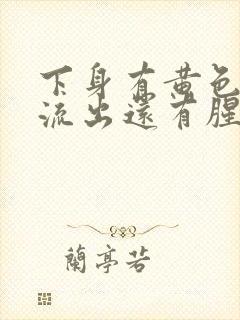 下身有黄色
流出还有腥
蘭亭若